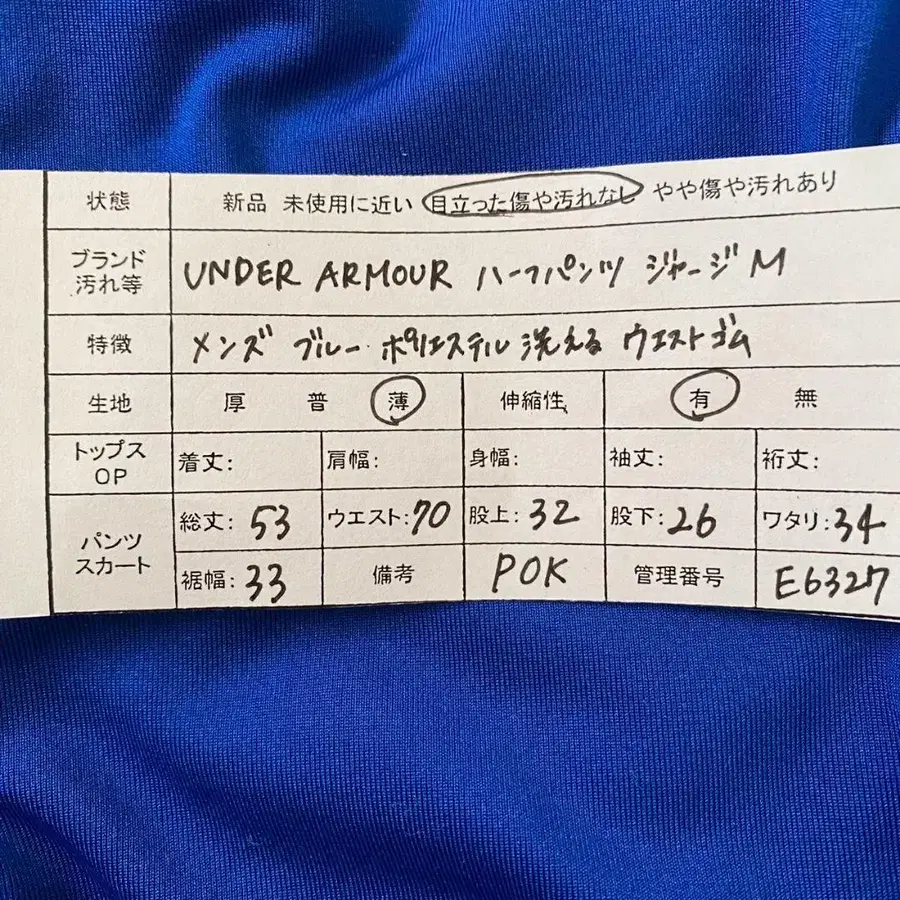 状態 新品 未使用に近い 目立った傷や汚れなし やや傷や汚れあり
ブランド
汚れ等 UNDER ARMOUR ハーフパンツ ジャージ M
特徴 メンズ ブルー ポリエステル 洗える ウエストゴム
生地 厚 普 薄 伸縮性 有 無
トップス
OP 着丈: 肩幅: 身幅: 袖丈: 裄丈:
パンツ
スカート 総丈: 53 ウエスト: 70 股上: 32 股下: 26 ワタリ: 34
裾幅: 33 備考 POK 管理番号 E6327